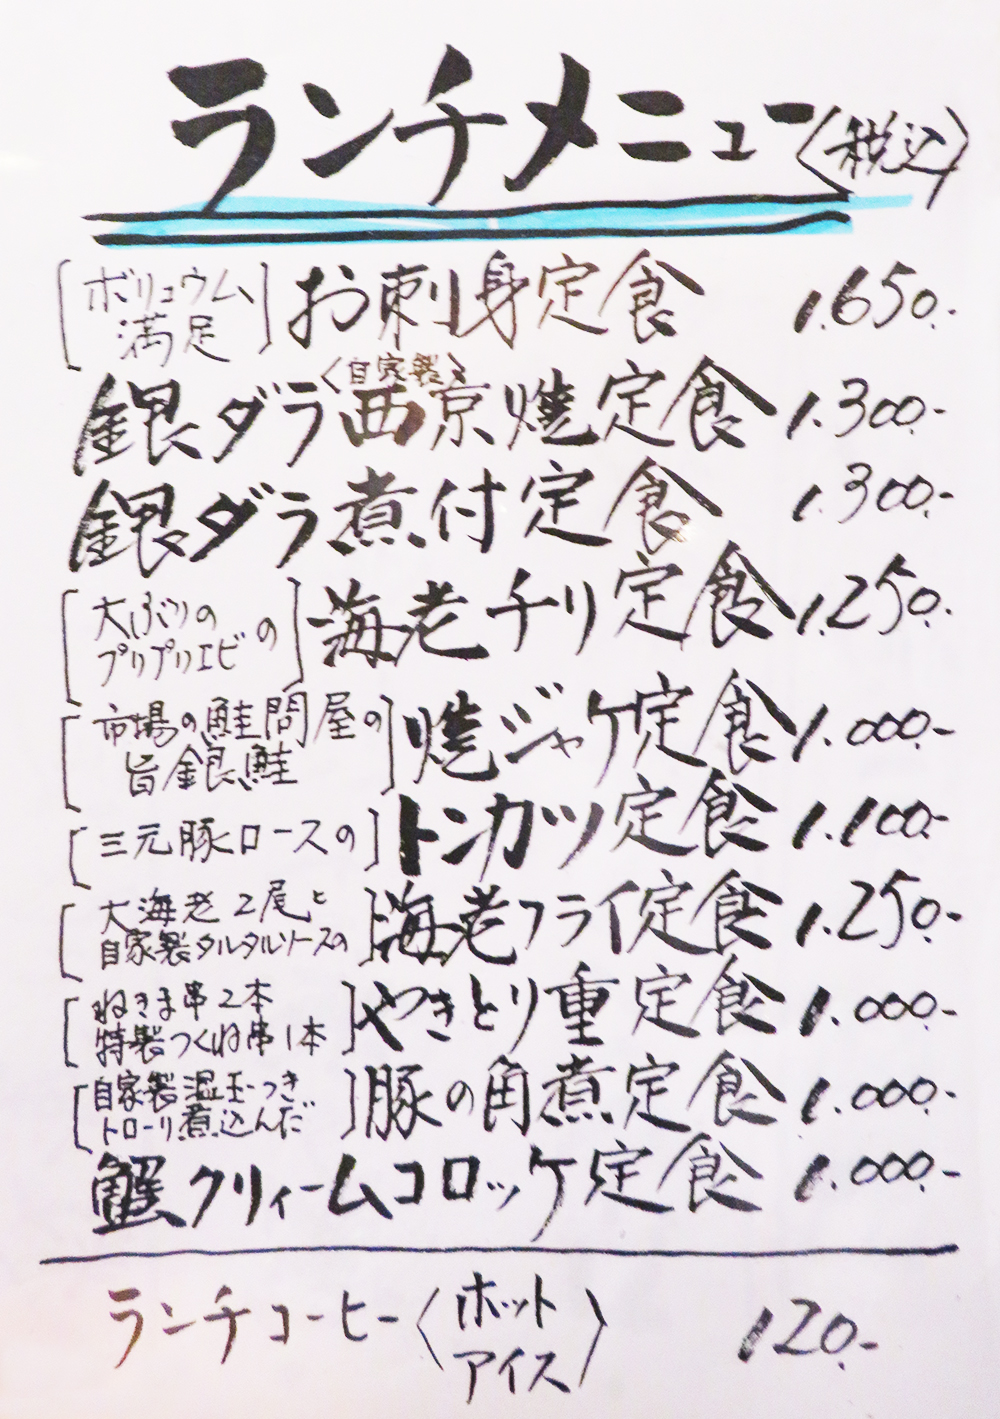 ランチメニュー〈税込〉
［ボリュウム満足］お刺身定食 1.650.-
銀ダラ〈自家製〉西京焼定食 1.300.-
銀ダラ煮付定食 1.300.-
［大ぶりのプリプリエビの］海老チリ定食 1.250.-
［市場の鮭問屋の旨銀鮭］焼ジャケ定食 1.000.-
［三元豚ロースの］トンカツ定食 1.100.-
［大海老2尾と自家製タルタルソースの］海老フライ定食 1.250.-
［ねぎま串2本特製つくね串1本］やきとり重定食 1.000.-
［自家製温玉つきトローリ煮込んだ］豚の角煮定食 1.000.-
蟹クリィームコロッケ定食 1.000.-
ランチコーヒー〈ホットアイス〉 120.-